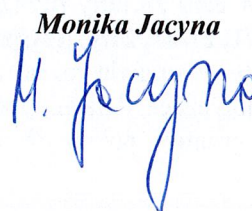 Monika Jacyna
M. Jacyna